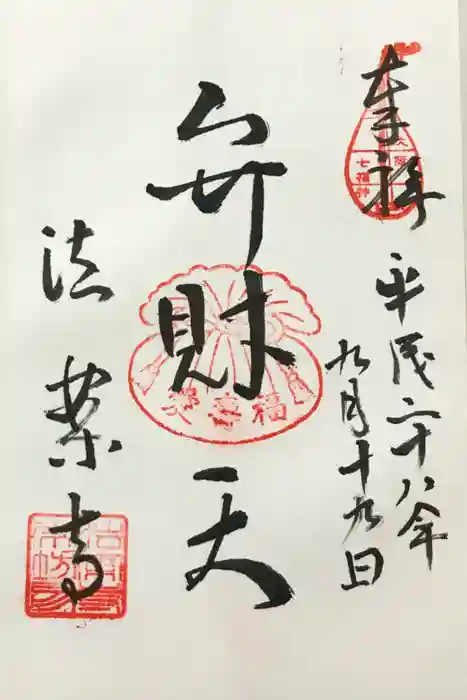 奉拝
大阪
七福神
平成二十八年
九月十九日
弁財天
法案寺